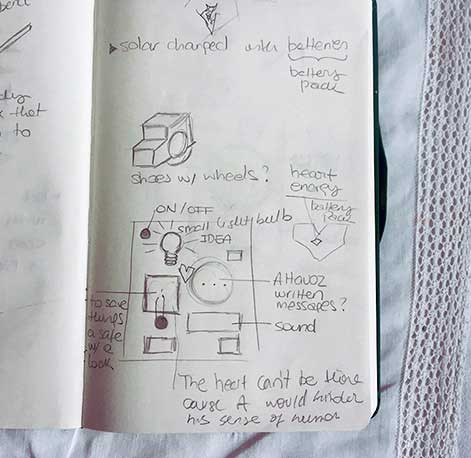 that
to
▸ solar charged with batteries
battery
pack
shoes w/ wheels?
heart
energy
battery
pack
ON/OFF
small light bulb
IDEA
written
messages?
sound
to save
things
a safe
w/ a
lock
The heart can't be there
cause A would hinder
his sense of humor